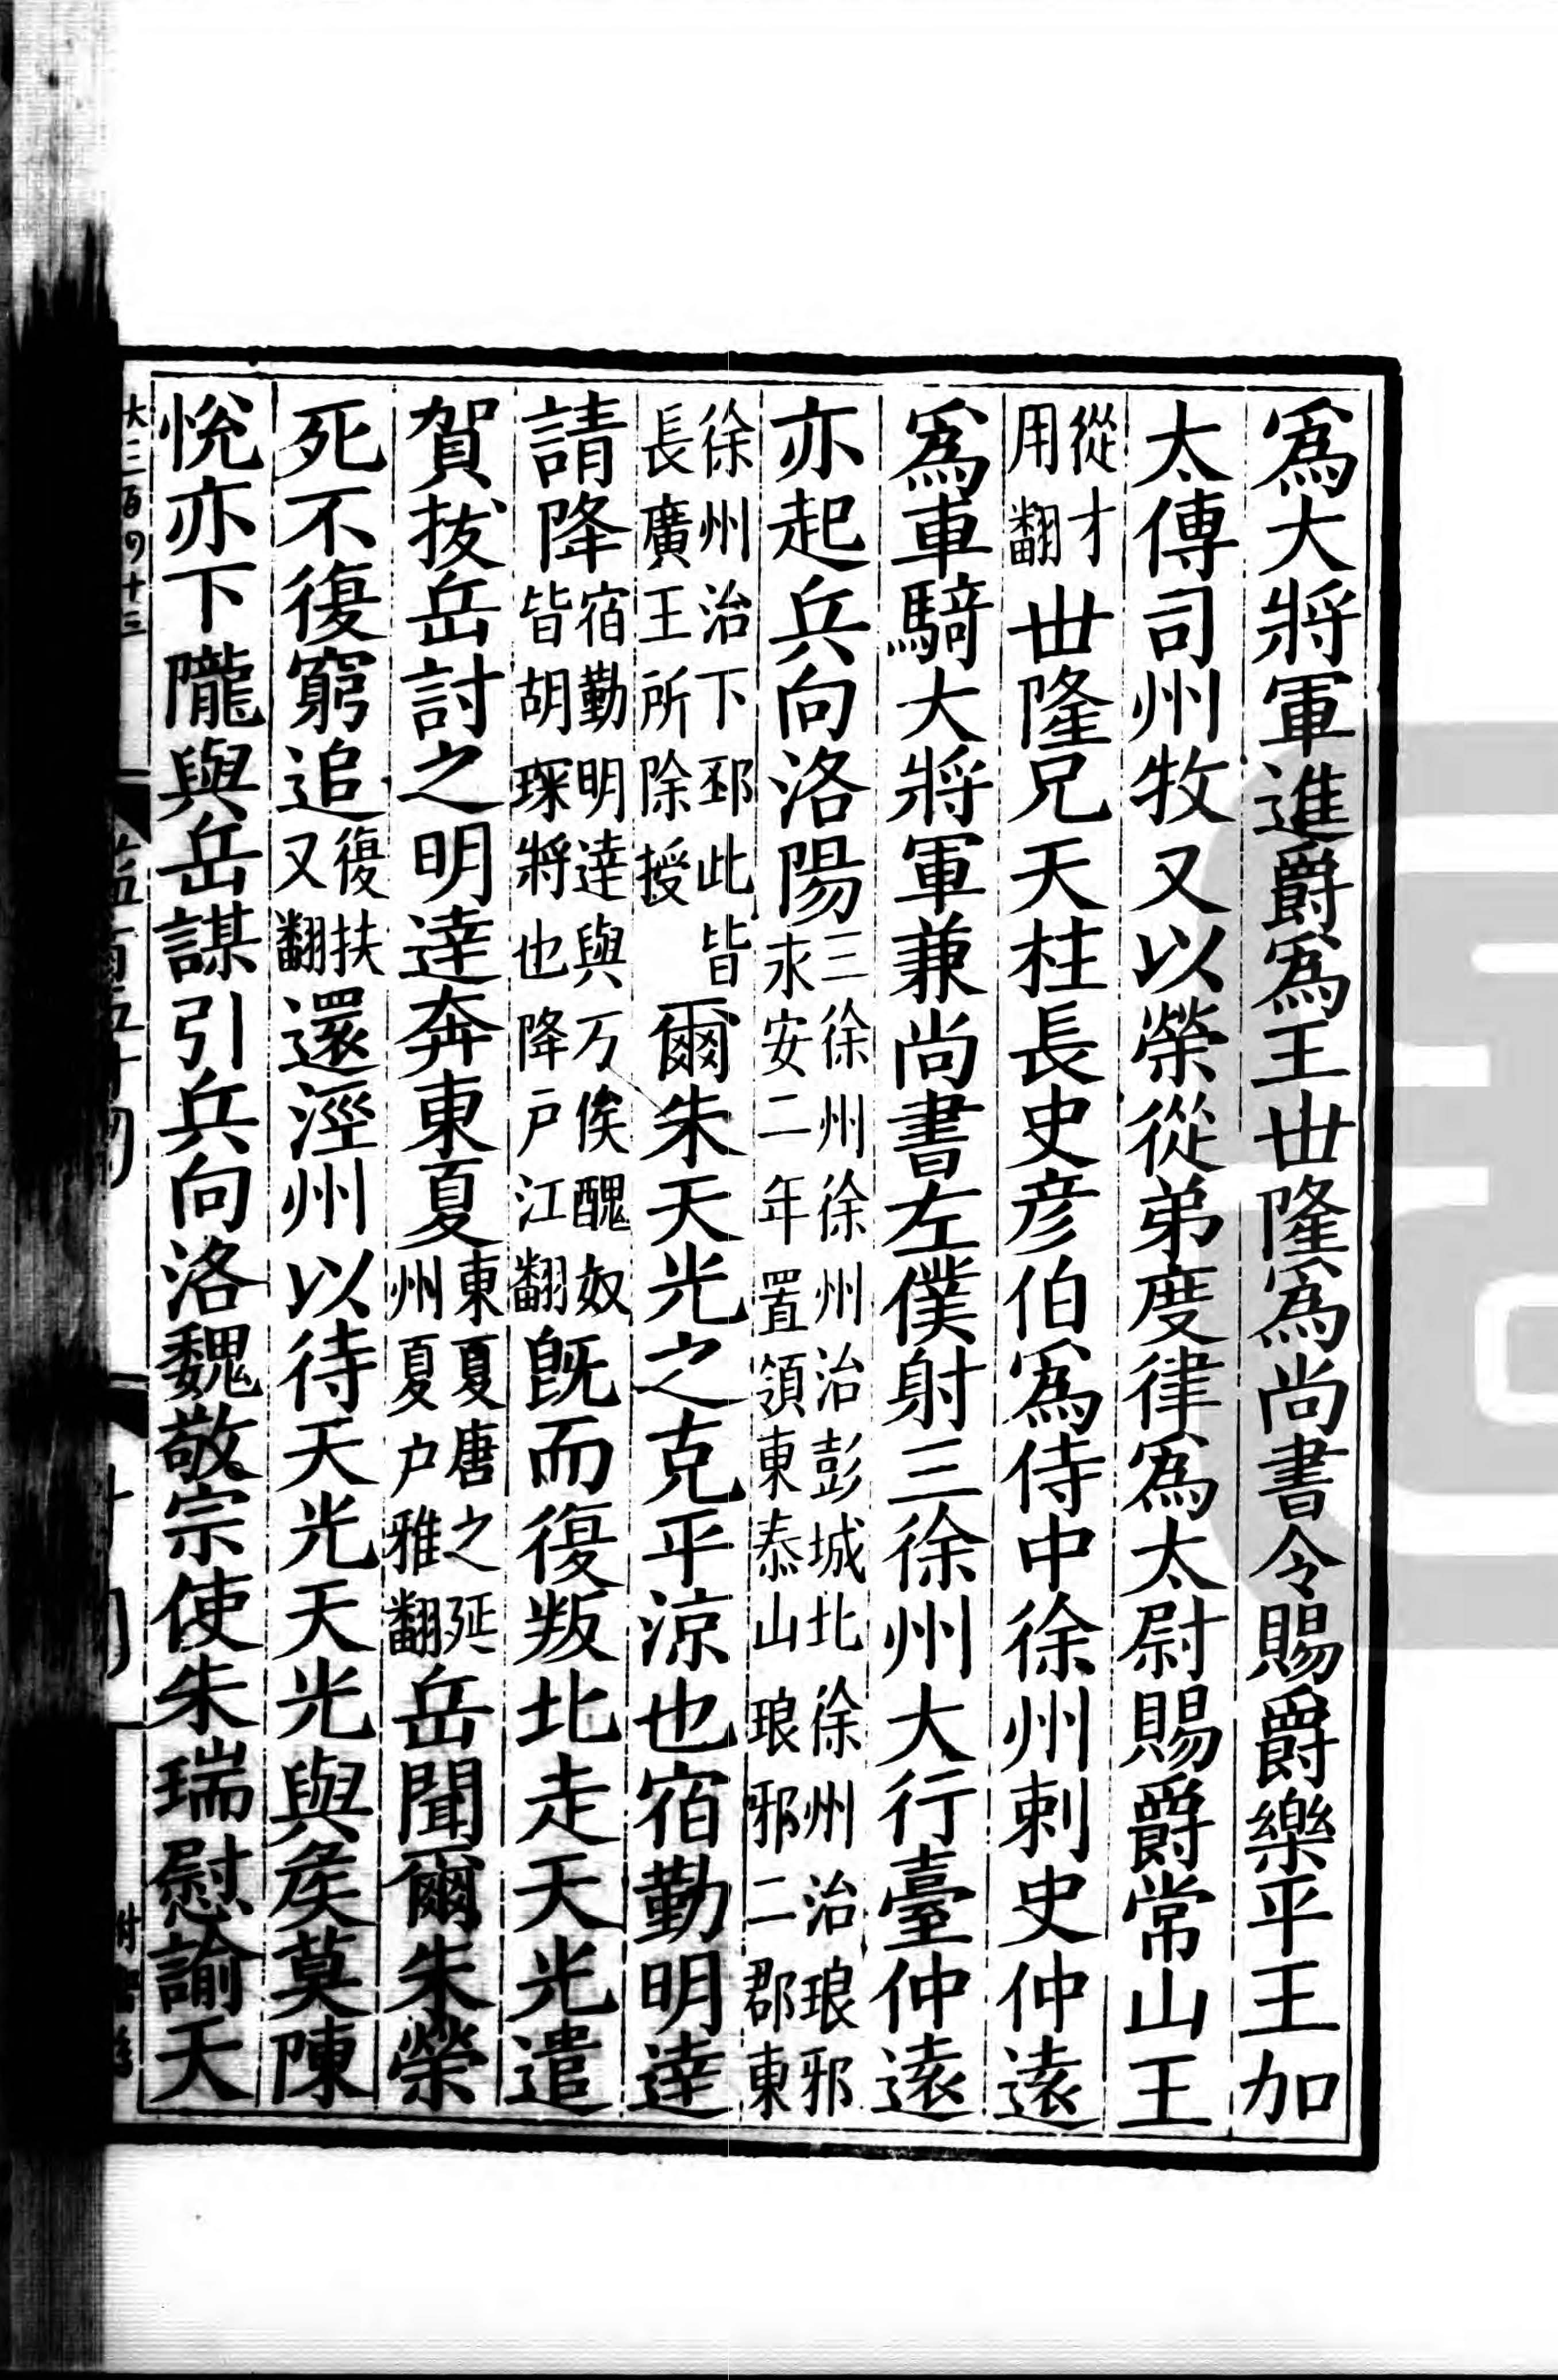 爲大將軍進爵爲王世隆爲尚書令賜爵樂平王加
太傅司州牧又以榮從弟度律爲太尉賜爵常山王
從才用翻世隆兄天柱長史彦伯爲侍中徐州刺史仲遠
爲車騎大將軍兼尚書左僕射三徐州大行臺仲遠
亦起兵向洛陽三徐州徐州治彭城北徐州治琅邪永安二年置領東泰山琅邪二郡東
徐州治下邳此皆長廣王所除授爾朱天光之克平涼也宿勤明達
請降宿勤明達與万俟醜奴皆胡琛將也降戶江翻旣而復叛北走天光遣
賀拔岳討之明達奔東夏東夏唐之延州夏户雅翻岳聞爾朱榮
死不復窮追復扶又翻還涇州以待天光天光與矦莫陳
悅亦下隴與岳謀引兵向洛魏敬宗使朱瑞慰諭天
大三百四十三